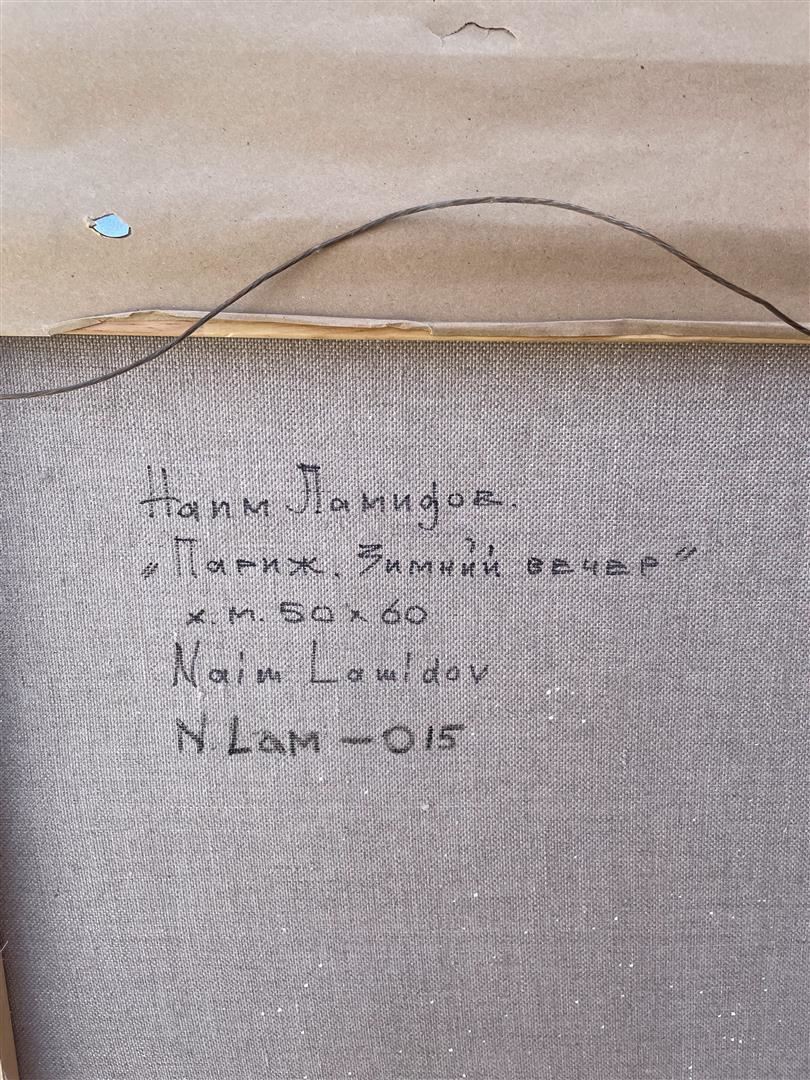 Наим Ламидов.
„Париж. Зимний вечер"
х.м. 50 x 60
Naim Lamidov
N.Lam – 015